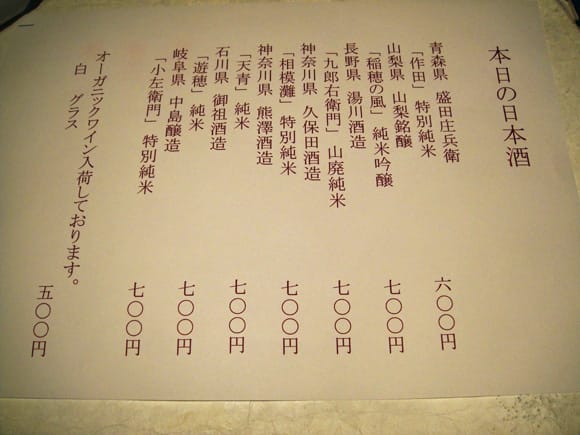 本日の日本酒
青森県 盛田庄兵衛
「作田」 特別純米 六〇〇円
山梨県 山梨銘醸
「稲穂の風」 純米吟醸 七〇〇円
長野県 湯川酒造
「九郎右衛門」 山廃純米 七〇〇円
神奈川県 久保田酒造
「相模灘」 特別純米 七〇〇円
神奈川県 熊澤酒造
「天青」 純米 七〇〇円
石川県 御祖酒造
「遊穂」 純米 七〇〇円
岐阜県 中島醸造
「小左衛門」 特別純米 七〇〇円
オーガニックワイン入荷しております。
白 グラス 五〇〇円